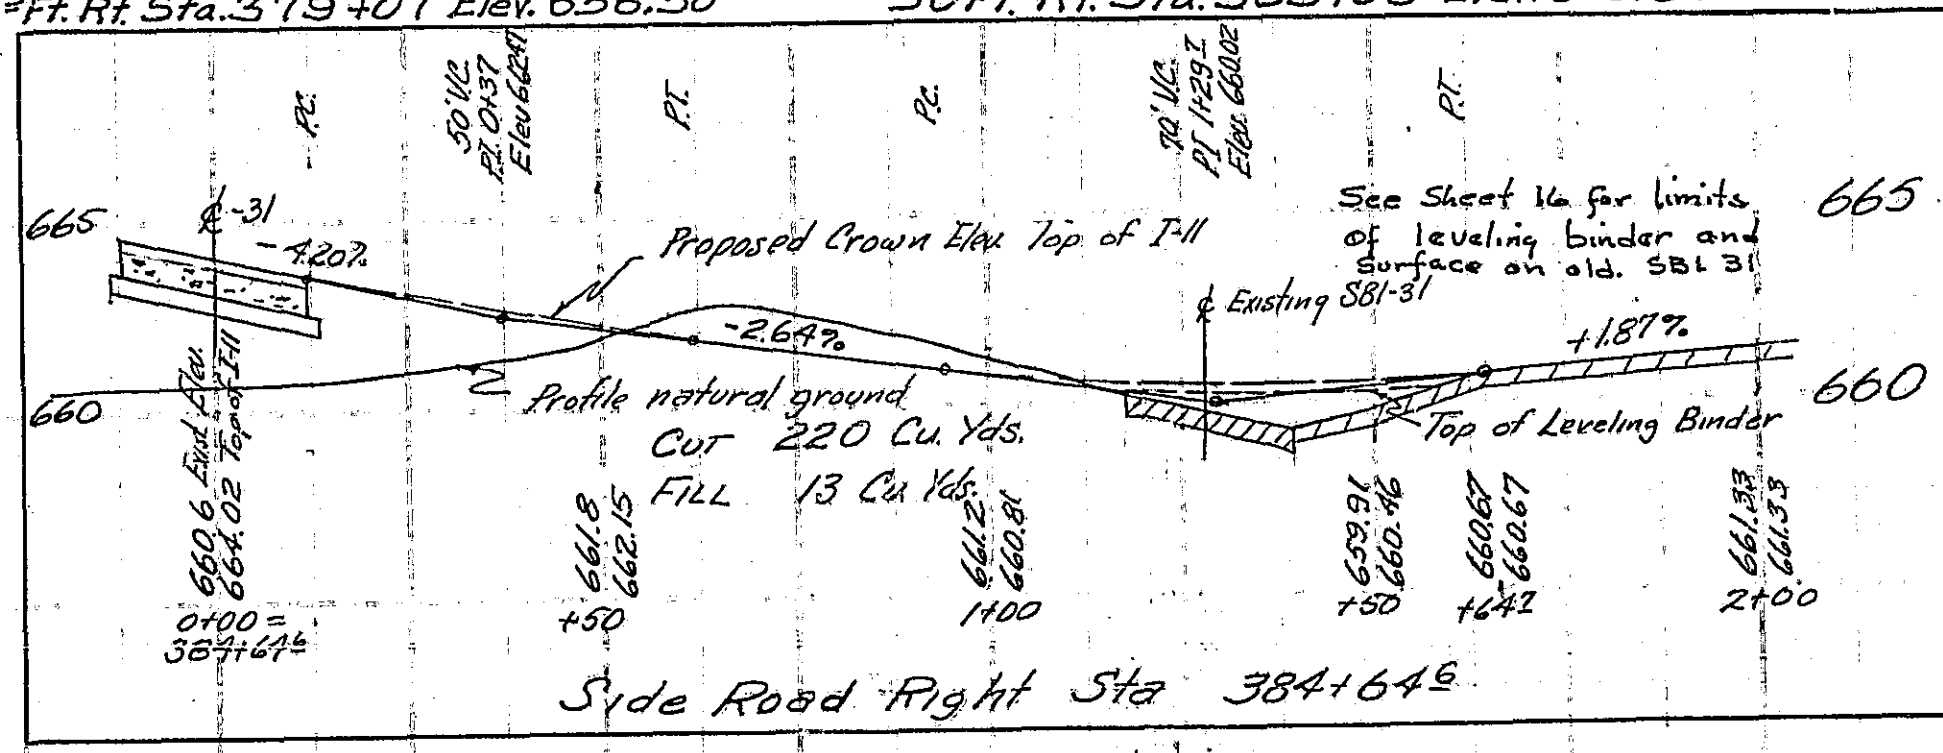 Ft. Rt. Sta. 379+01 Elev. 658.50
P.C.
50' V.C.
P.I. 0+37
Elev 662.47
P.T.
P.C.
70' V.C.
PI 1+29.7
Elev. 660.02
P.T.
665
℄-31
-4.20%
Proposed Crown Elev. Top of I-11
See Sheet 16 for limits
of leveling binder and
surface on old. SBI 31
665
℄ Existing SBI-31
-2.64%
+1.87%
660
Profile natural ground
Top of Leveling Binder
660
CUT 220 Cu. Yds.
FILL 13 Cu Yds.
660.6 Exist. Elev.
664.02 Top of I-11
661.8
662.15
661.2
660.81
659.91
660.46
660.67
660.67
661.33
661.33
0+00 =
384+64⁶
+50
1+00
+50
+64⁷
2+00
Side Road Right Sta 384+64⁶